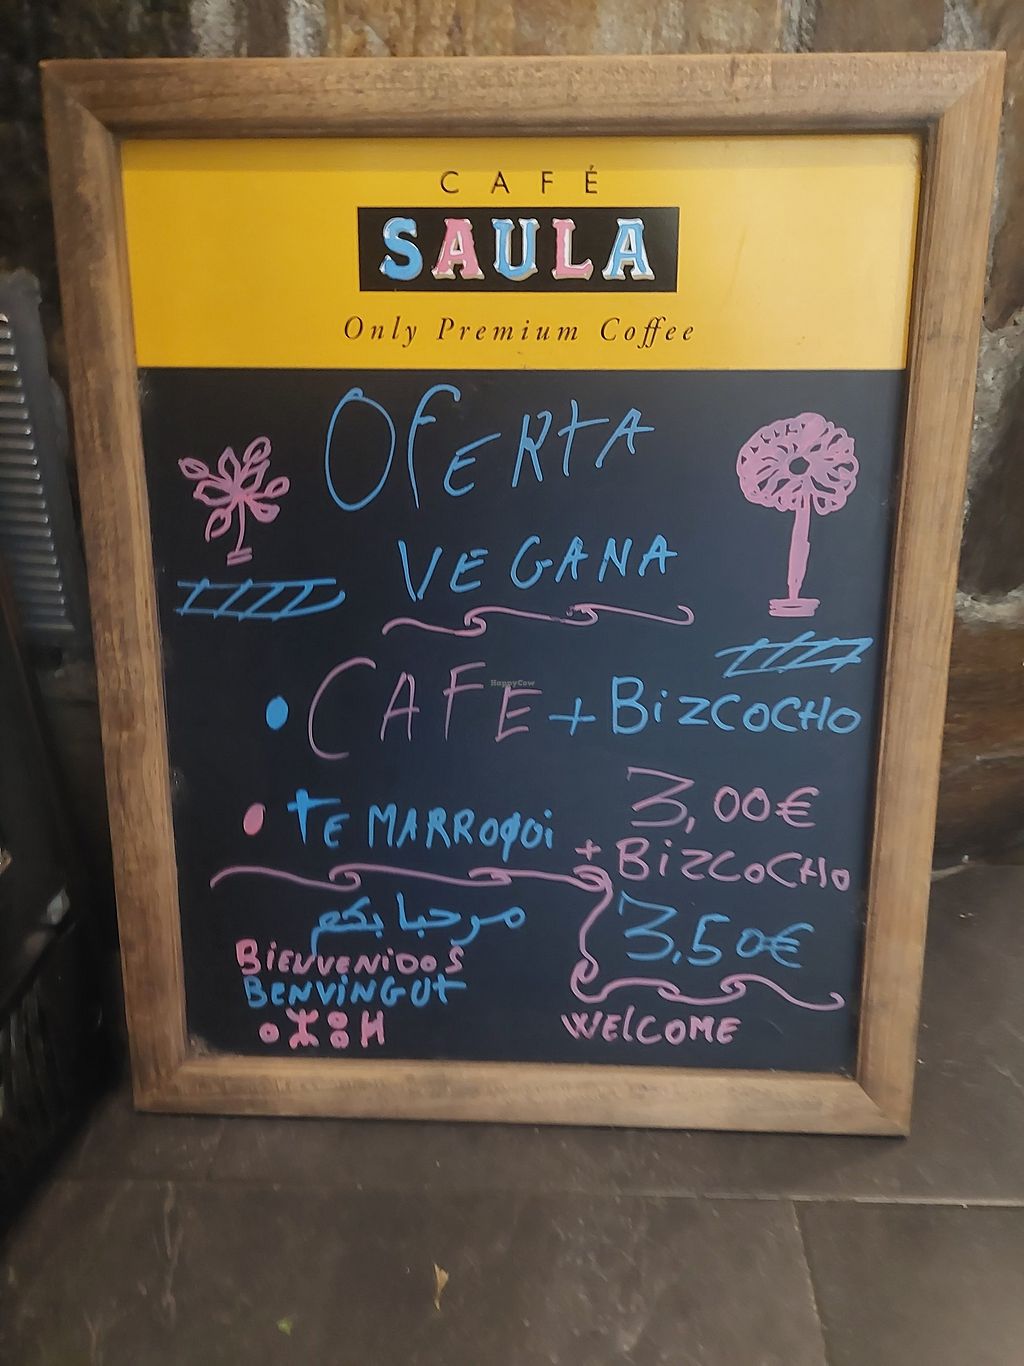 CAFÉ
SAULA
Only Premium Coffee
OFERTA
VEGANA
• CAFE + BIZCOCHO
3,00€
• TE MARROQUI + BIZCOCHO
3.50€
مرحبا بكم
BIENVENIDOS
BENVINGUT
ⴰⵣⵓⵍ
WELCOME
HappyCow